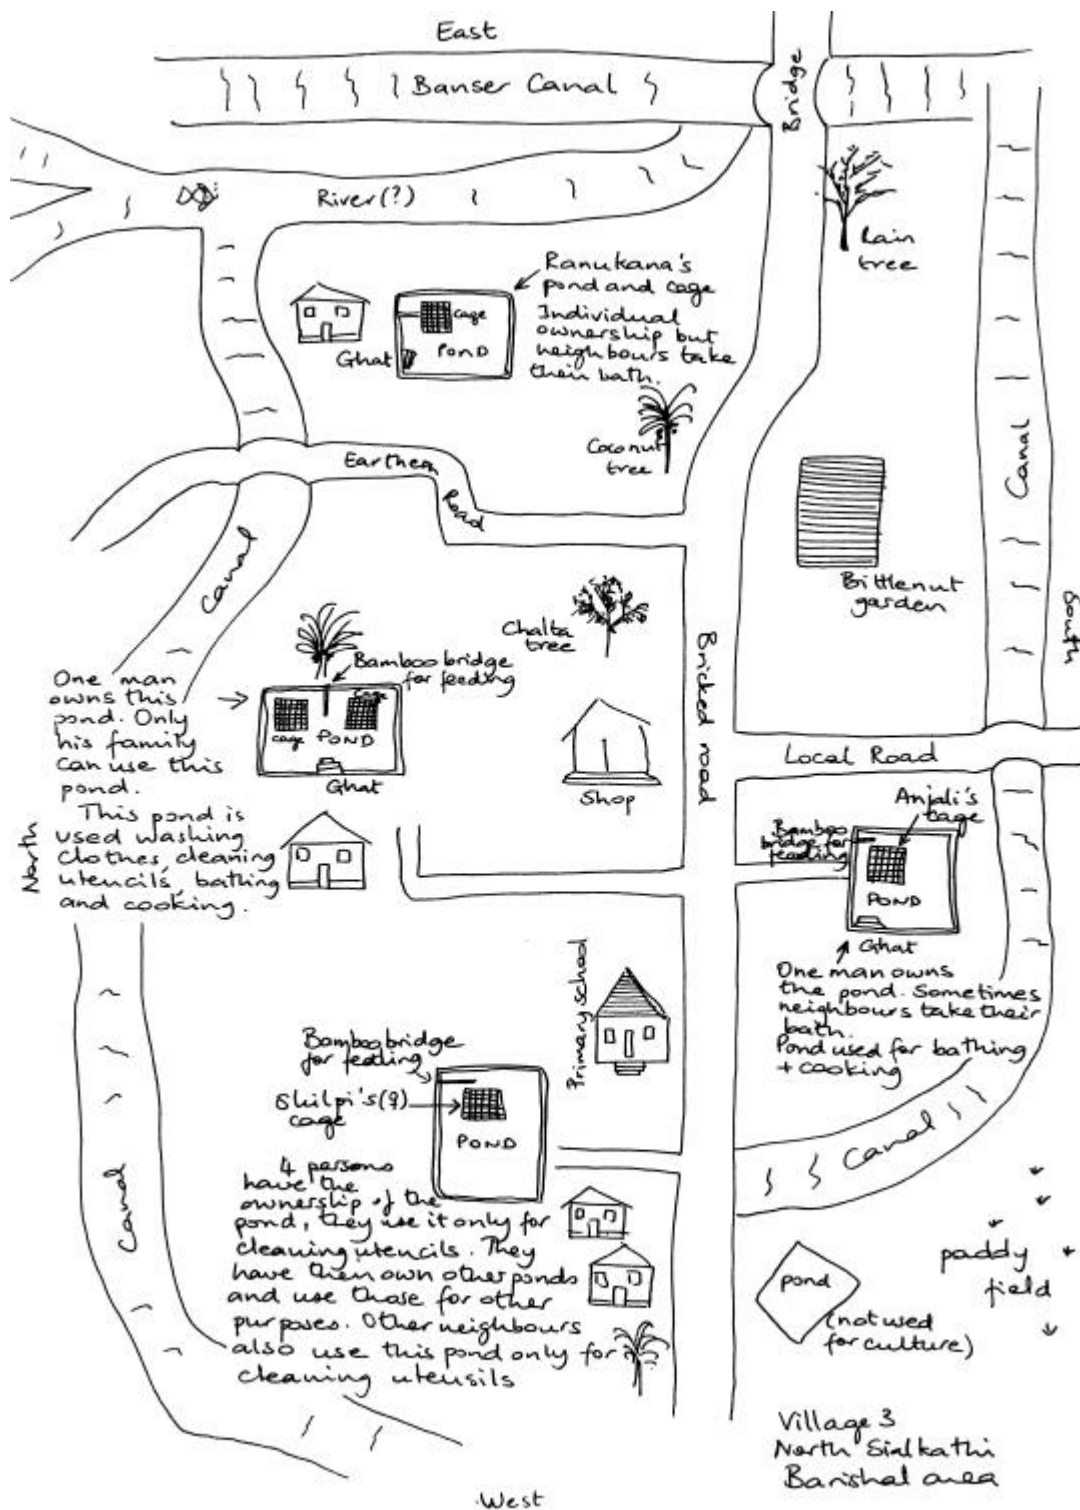 East
Banser Canal
Bridge
River(?)
Rain
tree
Ranukana's
pond and cage
Individual
ownership but
neighbours take
their bath.
cage
POND
Ghat
Coconut
tree
Earthen
Road
Canal
Canal
Bittlenut
garden
South
Chalta
tree
Bricked road
Bamboo bridge
for feeding
One man
owns this
pond. Only
his family
can use this
pond.
This pond is
used washing
clothes, cleaning
utencils, bathing
and cooking.
cage
cage
POND
Ghat
North
Shop
Local Road
Anjali's
cage
Bamboo
bridge for
feeding
POND
Ghat
One man owns
the pond. Sometimes
neighbours take their
bath.
Pond used for bathing
+ cooking
Primary school
Bamboo bridge
for feeding
Shilpi's(?)
cage
POND
4 persons
have the
ownership of the
pond, they use it only for
cleaning utencils. They
have their own other ponds
and use those for other
purposes. Other neighbours
also use this pond only for
cleaning utensils
Canal
Canal
paddy
field
pond
(not used
for culture)
Village 3
North Sialkathi
Barishal area
West